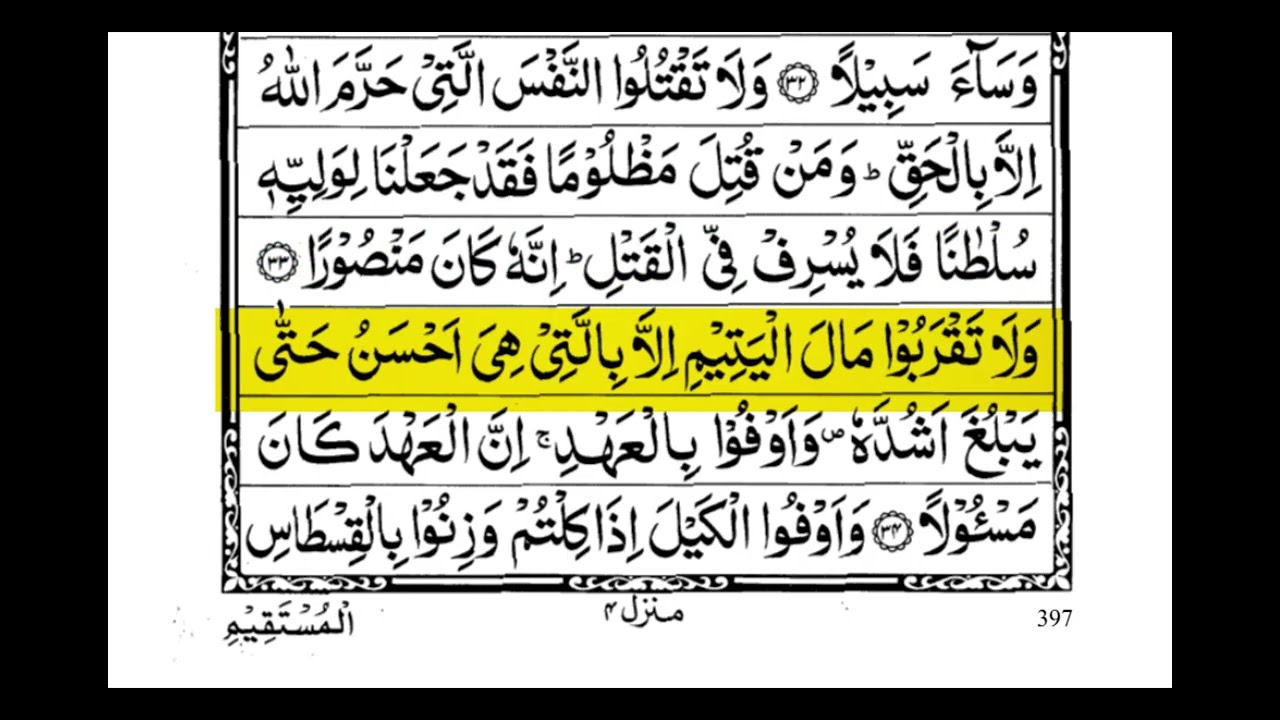 وَسَآءَ سَبِيْلًا ۝٣٢ وَلَا تَقْتُلُوا النَّفْسَ الَّتِيْ حَرَّمَ اللّٰهُ
اِلَّا بِالْحَقِّ ؕ وَمَنْ قُتِلَ مَظْلُوْمًا فَقَدْ جَعَلْنَا لِوَلِيِّهٖ
سُلْطٰنًا فَلَا يُسْرِفْ فِّي الْقَتْلِ ؕ اِنَّهٗ كَانَ مَنْصُوْرًا ۝٣٣
وَلَا تَقْرَبُوْا مَالَ الْيَتِيْمِ اِلَّا بِالَّتِيْ هِيَ اَحْسَنُ حَتّٰى
يَبْلُغَ اَشُدَّهٗ ۪ وَاَوْفُوْا بِالْعَهْدِ ۚ اِنَّ الْعَهْدَ كَانَ
مَسْـُٔوْلًا ۝٣٤ وَاَوْفُوا الْكَيْلَ اِذَا كِلْتُمْ وَزِنُوْا بِالْقِسْطَاسِ
الْمُسْتَقِيْمِ منزل ۴ 397